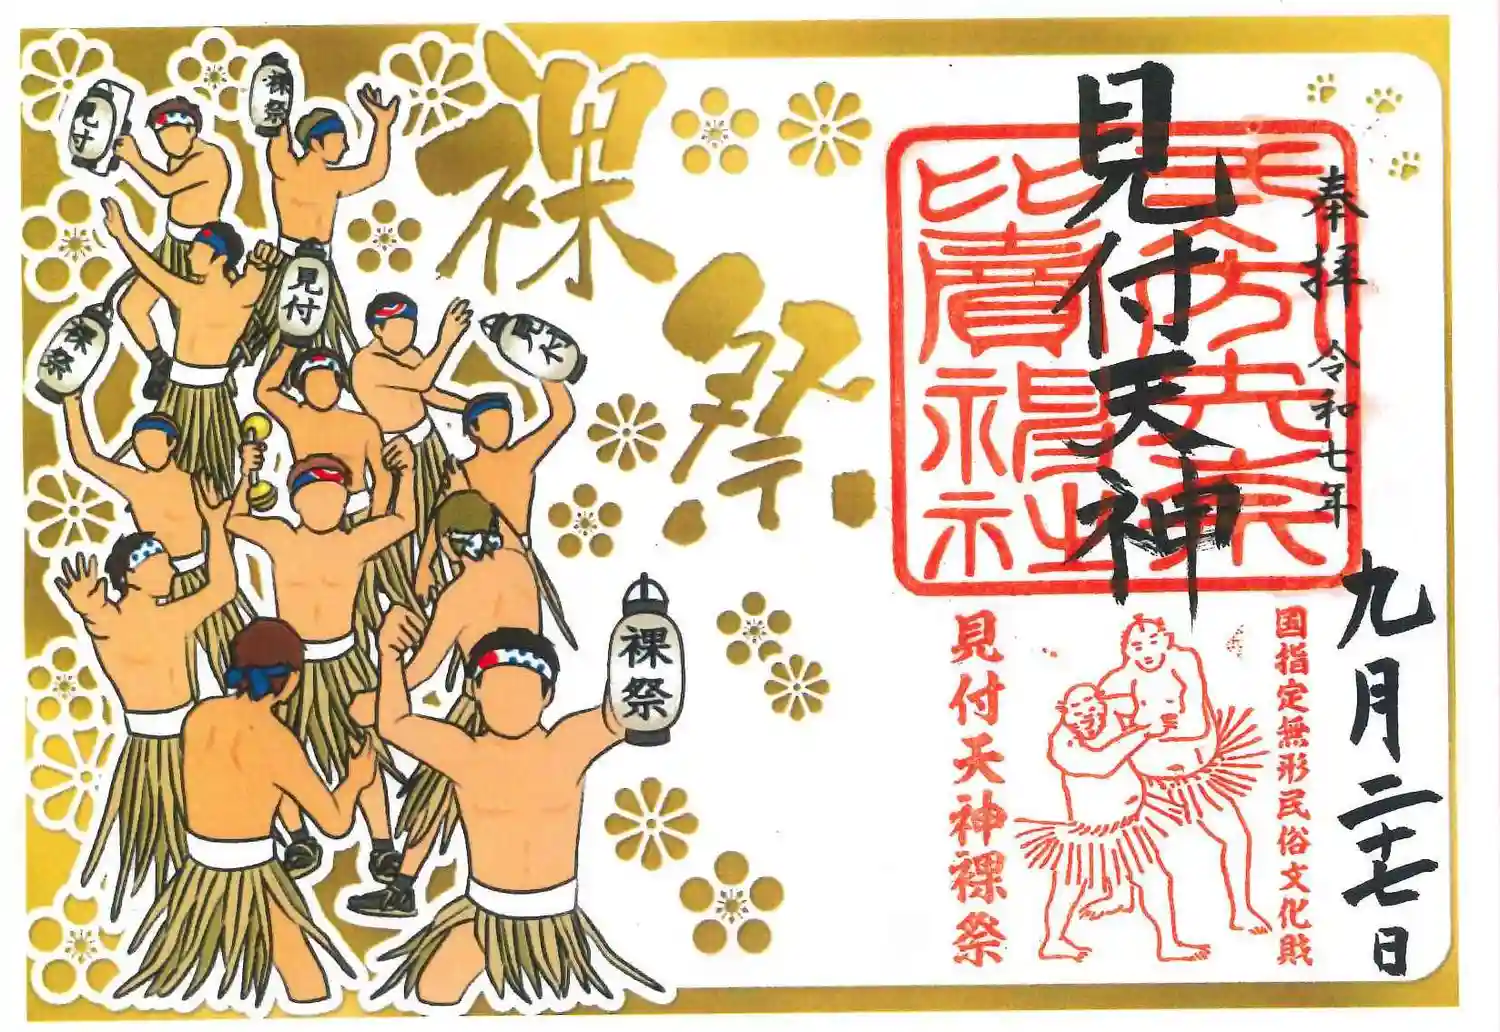 奉拝 令和七年
九月二十七日
見付天神
国指定無形民俗文化財
見付天神裸祭
裸祭
見付
裸祭
見付
裸祭
見付
裸祭